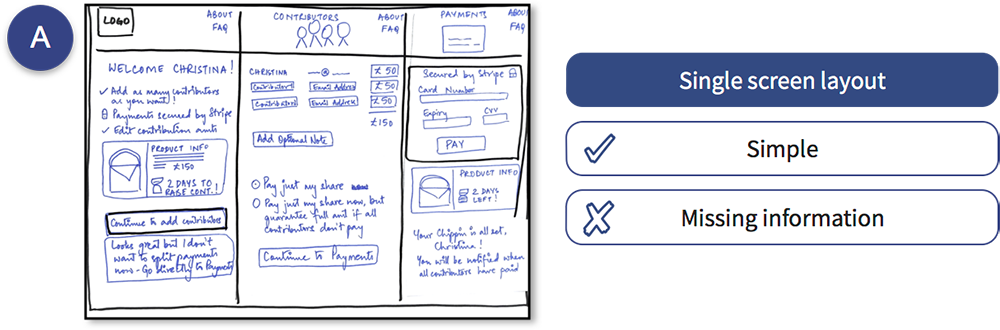 A
LOGO
ABOUT
FAQ
WELCOME CHRISTINA!
Add as many contributors
as you want!
Payments secured by Stripe
Edit contribution amts
PRODUCT INFO
£150
2 DAYS TO
RAISE CONT.!
Continue to add contributors
Looks great but I don't
want to split payments
now - Go directly to Payments
CONTRIBUTORS
ABOUT
FAQ
CHRISTINA
£50
Contributor 1
Email Address
£50
Contributor 2
Email Address
£50
£150
Add Optional Note
Pay just my share
Pay just my share now, but
guarantee full amt if all
contributors don't pay
Continue to Payments
PAYMENTS
ABOU
FAQ
Secured by Stripe
Card Number
Expiry
CVV
PAY
PRODUCT INFO
2 DAYS
LEFT!
Your Chippin is all set,
Christina!
You will be notified when
all contributors have paid
Single screen layout
Simple
Missing information